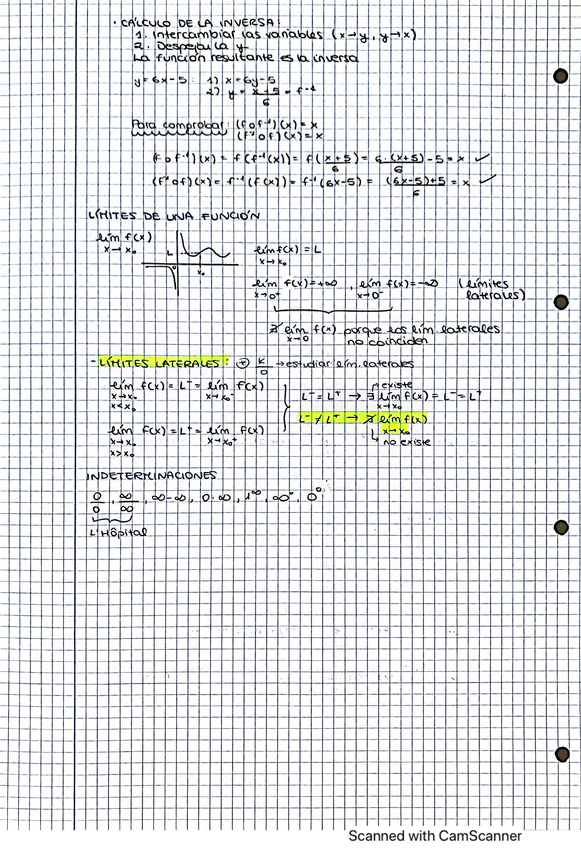 · CÁLCULO DE LA INVERSA:
1. Intercambiar las variables (x→y, y→x)
2. Despejar la y
La función resultante es la inversa
y = 6x - 5 : 1) x = 6y - 5
2) y = (x + 5)/6 = f⁻¹
Para comprobar: (f o f⁻¹)(x) = x
(f⁻¹ o f)(x) = x
(f o f⁻¹)(x) = f(f⁻¹(x)) = f((x+5)/6) = 6·(x+5)/6 - 5 = x ✓
(f⁻¹ o f)(x) = f⁻¹(f(x)) = f⁻¹(6x-5) = ((6x-5)+5)/6 = x ✓
LÍMITES DE UNA FUNCIÓN
lím f(x)
x→x₀
L
0
x₀
lím f(x) = L
x→x₀
lím f(x) = +∞ , lím f(x) = -∞ (límites
x→0⁺ x→0⁻ laterales)
∄ lím f(x) porque los lím. laterales
x→0 no coinciden
- LÍMITES LATERALES: K/0 → estudiar lím. laterales
lím f(x) = L⁻ = lím f(x)
x→x₀ x→x₀⁻
x<x₀
lím f(x) = L⁺ = lím f(x)
x→x₀ x→x₀⁺
x>x₀
existe
L⁻ = L⁺ → ∃ lím f(x) = L⁻ = L⁺
x→x₀
L⁻ ≠ L⁺ → ∄ lím f(x)
x→x₀
↳ no existe
INDETERMINACIONES
0/0 , ∞/∞ , ∞-∞, 0·∞, 1^∞, ∞⁰, 0⁰
L'Hôpital
Scanned with CamScanner